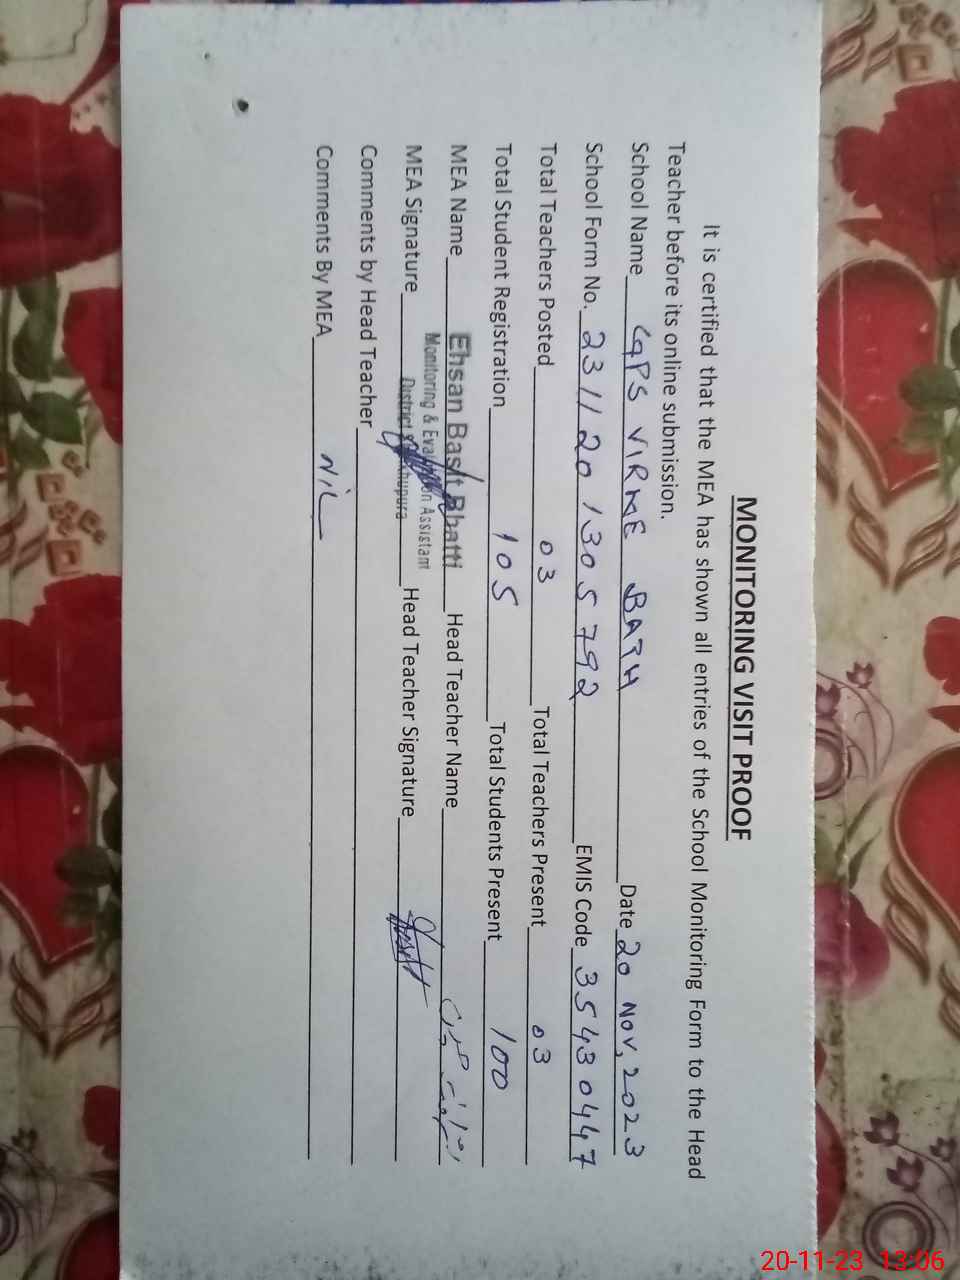 MONITORING VISIT PROOF
It is certified that the MEA has shown all entries of the School Monitoring Form to the Head
Teacher before its online submission.
School Name GPS VIRME BATH Date 20 Nov, 2023
School Form No. 2311201305792 EMIS Code 35430447
Total Teachers Posted 03 Total Teachers Present 03
Total Student Registration 105 Total Students Present 100
MEA Name Ehsan Basit Bhatti Head Teacher Name
Monitoring & Evaluation Assistant
MEA Signature District Sheikhupura Head Teacher Signature
Comments by Head Teacher
Comments By MEA NIL
20-11-23 13:06